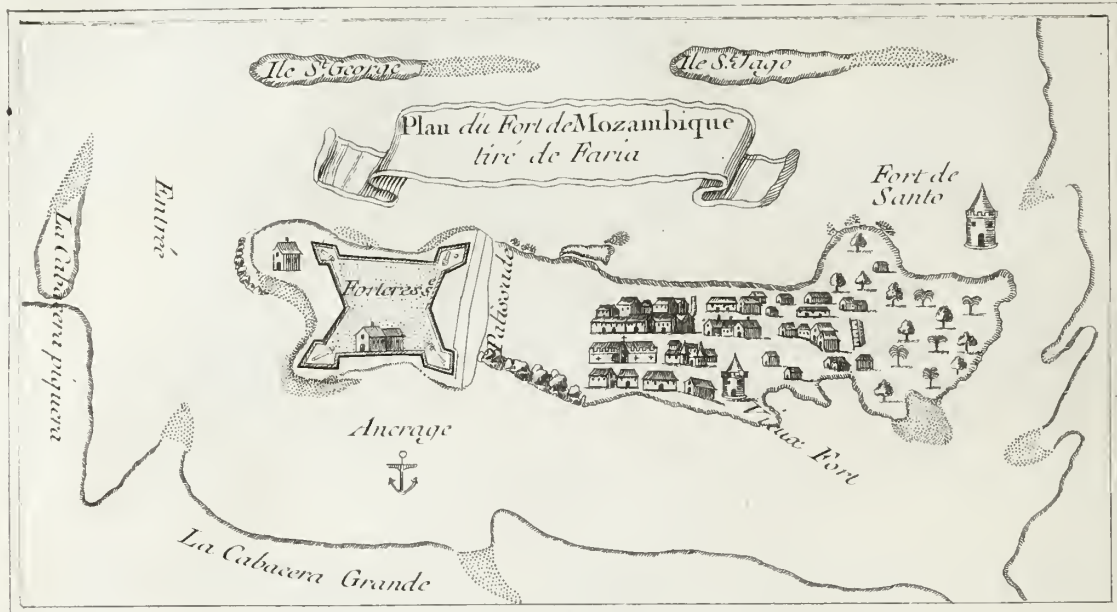 Ile St. George
Ile St. Jago
Plan du Fort de Mozambique
tiré de Faria
Fort de
Santo
Entrée
Forteresse
Palissade
Ancrage
Vieux Fort
La Cabacera Grande